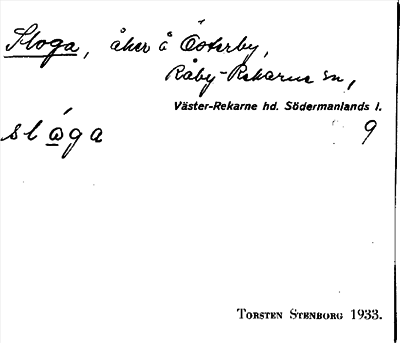 Sloga, åker å Österby,
Råby-Rekarne sn,
Väster-Rekarne hd. Södermanlands l.
slώga 9
TORSTEN STENBORG 1933.